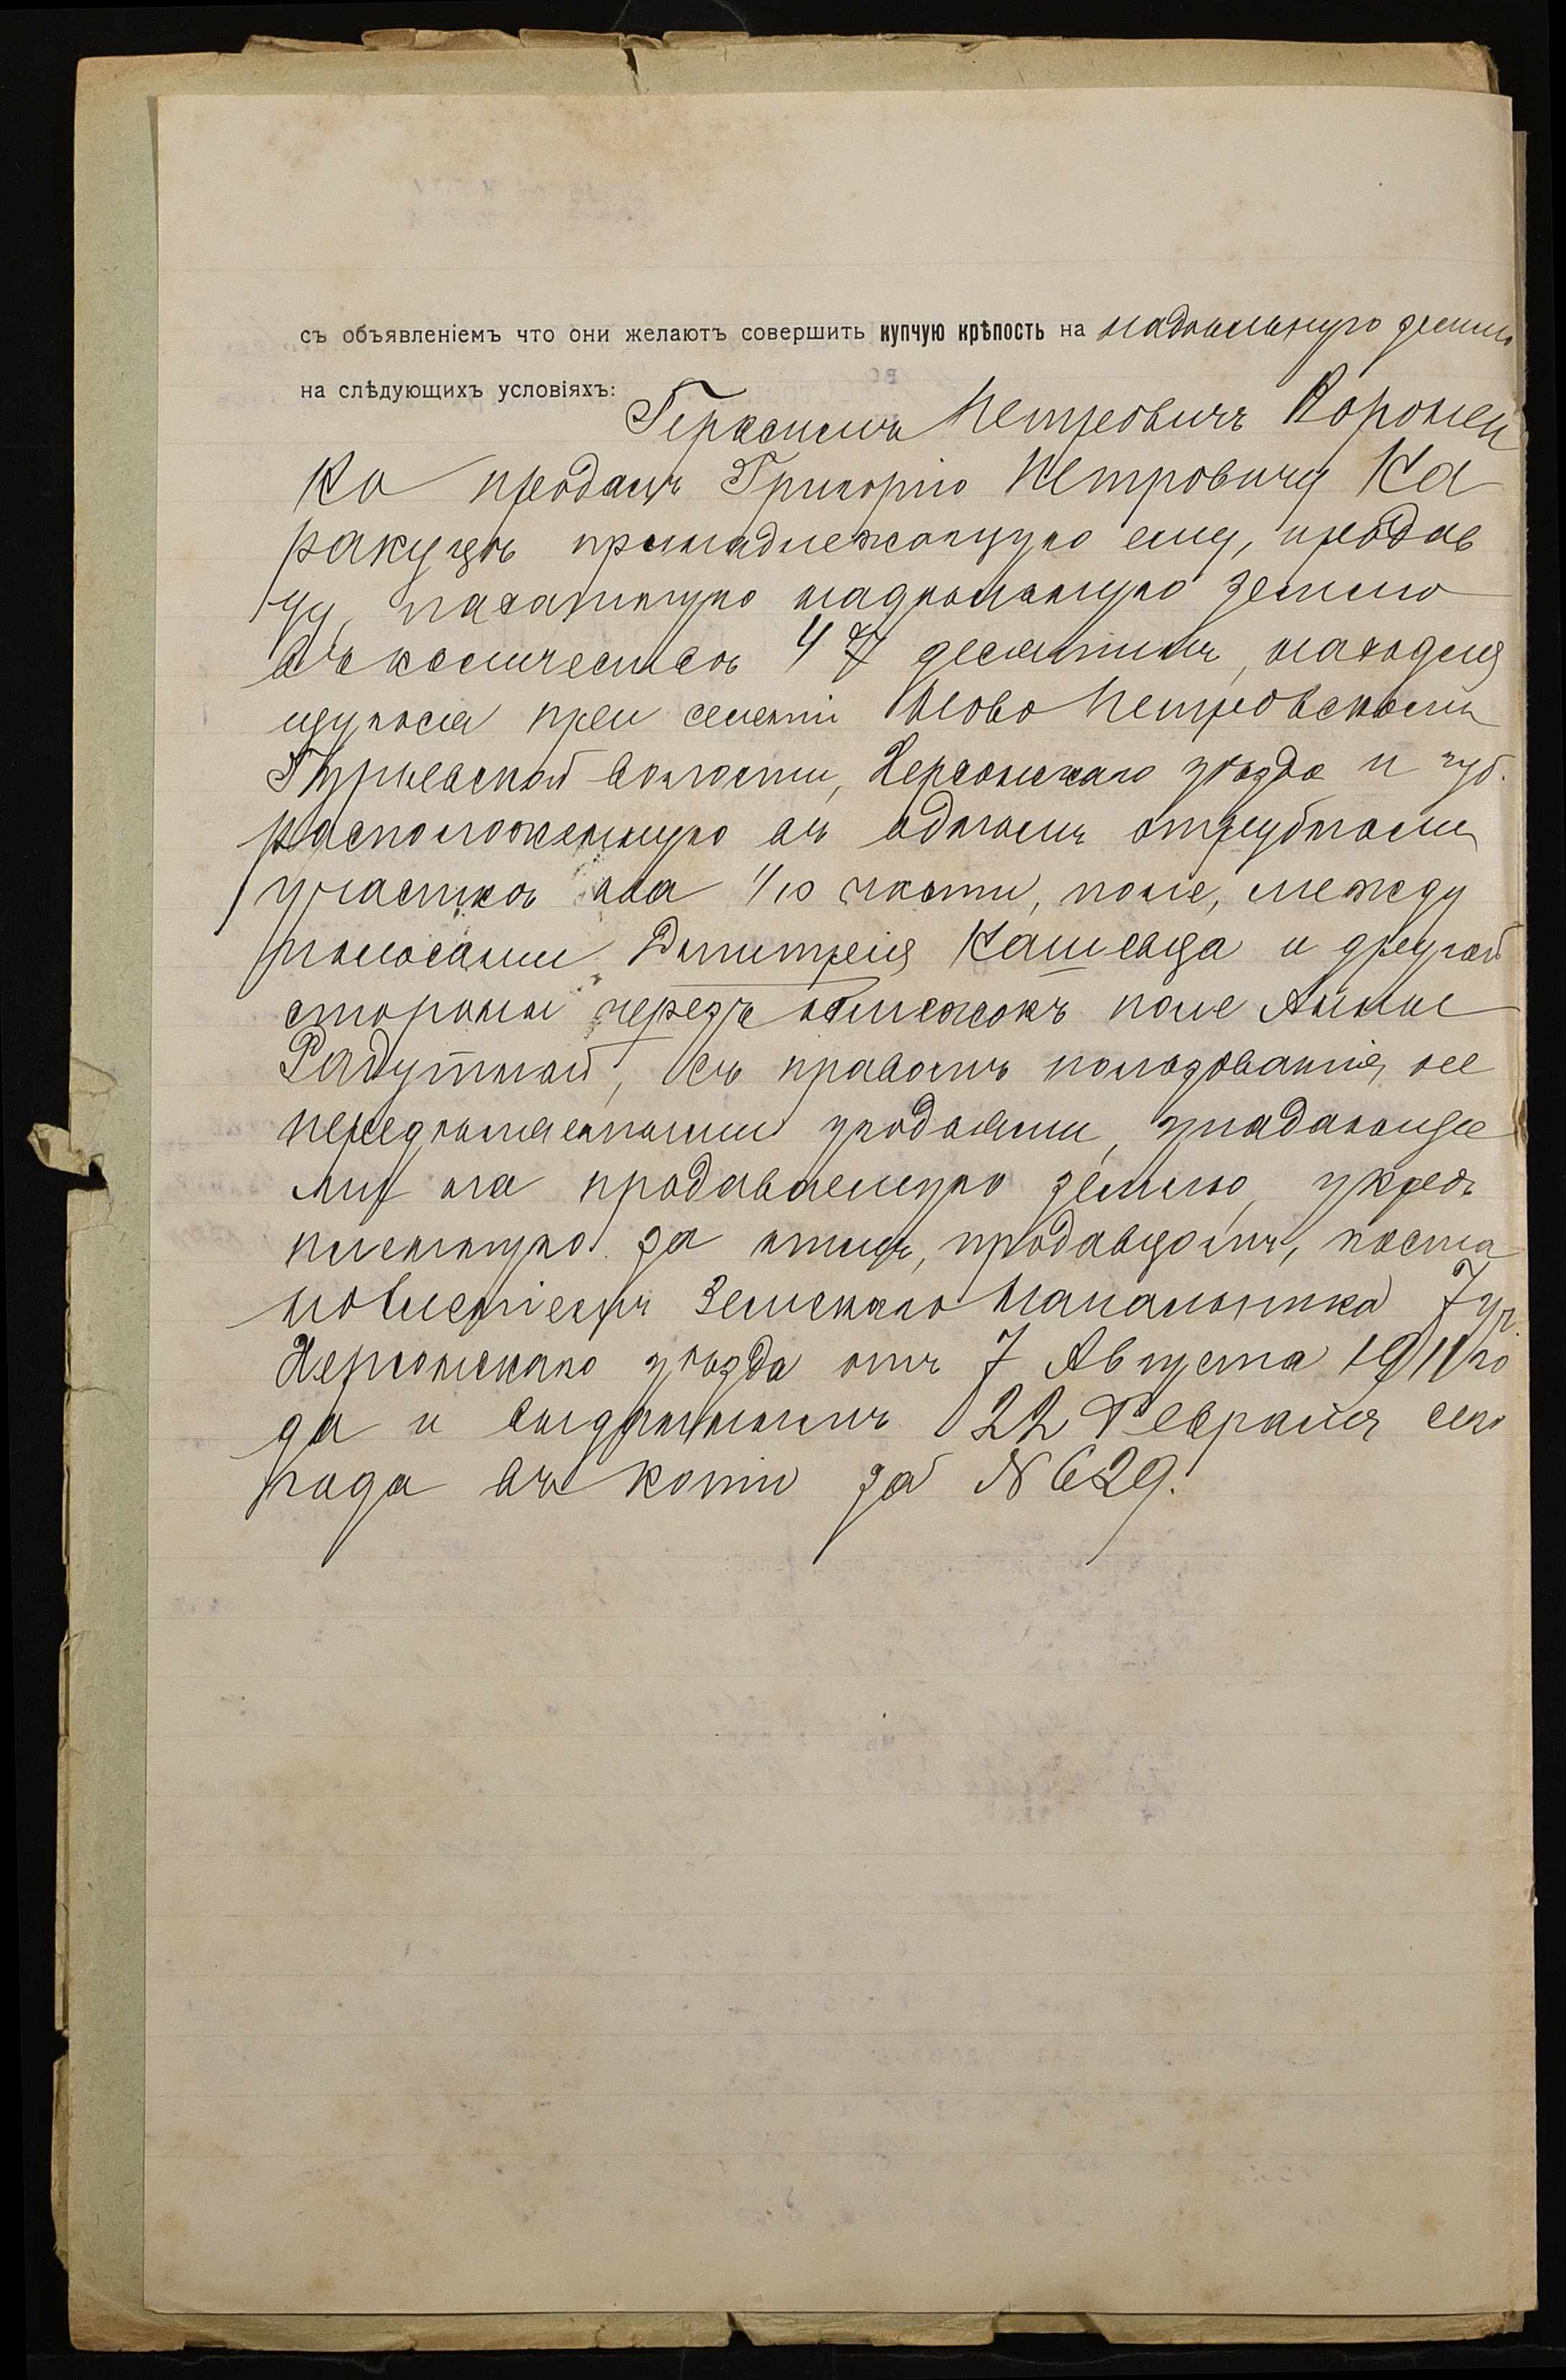 съ объявленіемъ что они желаютъ совершить купчую крѣпость на надѣльную землю
на слѣдующихъ условіяхъ:
Герасимъ Петровичъ Воронен
ко продалъ Григорію Петровичу Ка
ракуцѣ принадлежащую ему, продав
цу, пахатную надѣльную землю
въ количествѣ десятинъ, находя
щуюся при селеніи Ново Петровскомъ
Гурьевской волости, Херсонскаго уѣзда и губ.
расположенную въ одномъ отрубномъ
участкѣ на части, поле, между
полосами Дмитрія и другой
стороны черезъ поле Анны
съ правомъ пользованія не
передѣляемыми угодьями, упадающи
ми на продаваемую землю, укрѣп
ленную за нимъ, продавцомъ, поста
новленіемъ Земскаго Начальника 7 уч.
Херсонскаго уѣзда отъ 7 Августа 1911 го
да и выданнымъ 22 Февраля сего
года въ копіи за № 629.